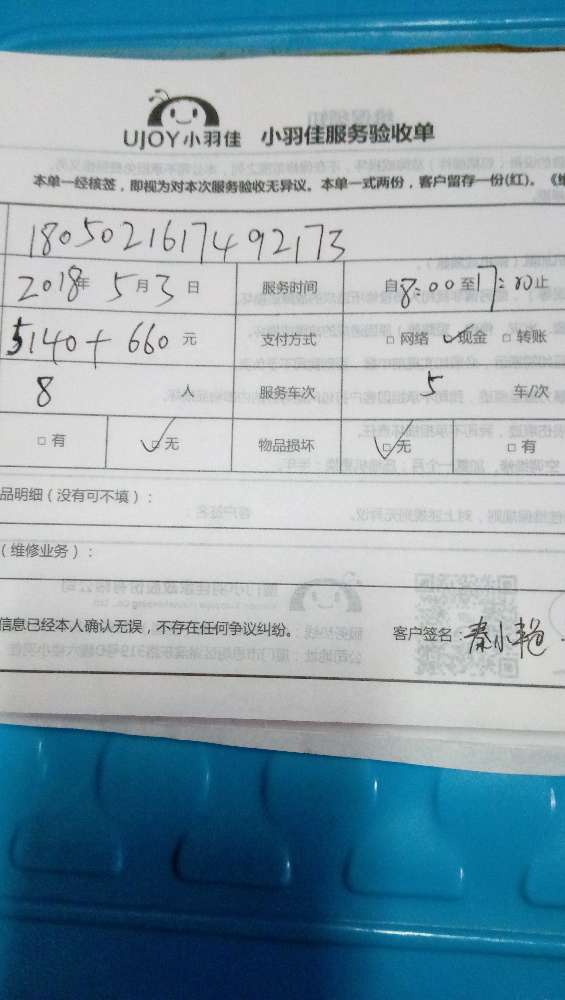 UJOY小羽佳 小羽佳服务验收单
本单一经核签，即视为对本次服务验收无异议。本单一式两份，客户留存一份(红)。《维
1805021617492173
2018年 5月3日 服务时间 自8:00至17:00止
5140+660元 支付方式 □网络 ☑现金 □转账
8人 服务车次 5车/次
□有 ☑无 物品损坏 ☑无 □有
品明细（没有可不填）：
（维修业务）：
信息已经本人确认无误，不存在任何争议纠纷。 客户签名：秦小艳